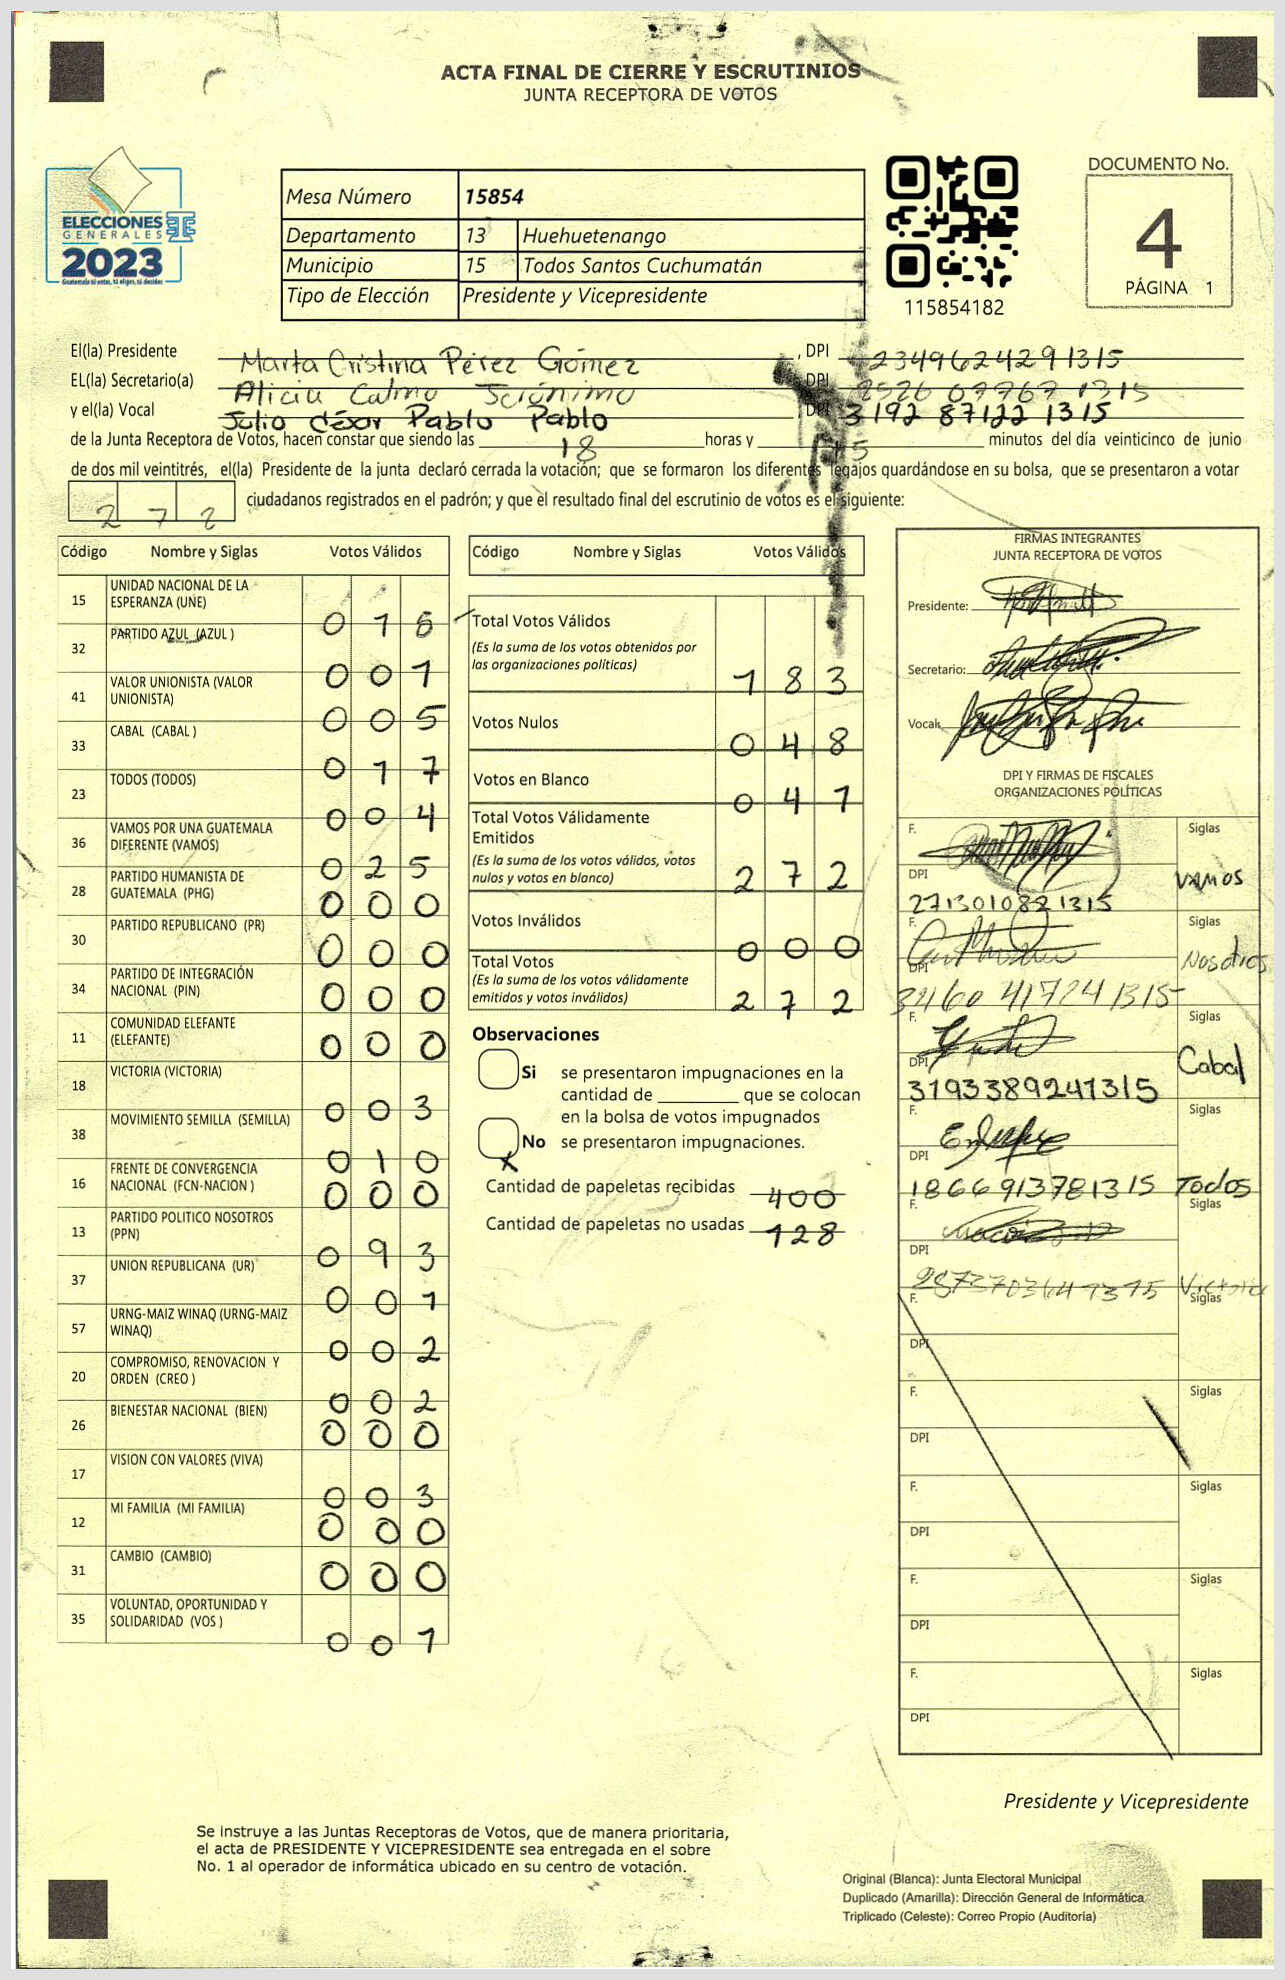 ACTA FINAL DE CIERRE Y ESCRUTINIOS
JUNTA RECEPTORA DE VOTOS
ELECCIONES
GENERALES
2023
Guatemala tú votas, tú eliges, tú decides
Mesa Número 15854
Departamento 13 Huehuetenango
Municipio 15 Todos Santos Cuchumatán
Tipo de Elección Presidente y Vicepresidente
115854182
DOCUMENTO No.
4
PÁGINA 1
El(la) Presidente Marta Cristina Pérez Gómez, DPI 2349624291315
EL(la) Secretario(a) Alicia Calmo Jerónimo DPI 2526 07767 1315
y el(la) Vocal Julio César Pablo Pablo DPI 3192 87122 1315
de la Junta Receptora de Votos, hacen constar que siendo las 18 horas y 15 minutos del día veinticinco de junio
de dos mil veintitrés, el(la) Presidente de la junta declaró cerrada la votación; que se formaron los diferentes legajos quardándose en su bolsa, que se presentaron a votar
272 ciudadanos registrados en el padrón; y que el resultado final del escrutinio de votos es el siguiente:
Código Nombre y Siglas Votos Válidos
15 UNIDAD NACIONAL DE LA ESPERANZA (UNE) 016
32 PARTIDO AZUL (AZUL ) 001
41 VALOR UNIONISTA (VALOR UNIONISTA) 005
33 CABAL (CABAL ) 017
23 TODOS (TODOS) 004
36 VAMOS POR UNA GUATEMALA DIFERENTE (VAMOS) 025
28 PARTIDO HUMANISTA DE GUATEMALA (PHG) 000
30 PARTIDO REPUBLICANO (PR) 000
34 PARTIDO DE INTEGRACIÓN NACIONAL (PIN) 000
11 COMUNIDAD ELEFANTE (ELEFANTE) 000
18 VICTORIA (VICTORIA) 003
38 MOVIMIENTO SEMILLA (SEMILLA) 010
16 FRENTE DE CONVERGENCIA NACIONAL (FCN-NACION ) 000
13 PARTIDO POLITICO NOSOTROS (PPN) 093
37 UNION REPUBLICANA (UR) 001
57 URNG-MAIZ WINAQ (URNG-MAIZ WINAQ) 002
20 COMPROMISO, RENOVACION Y ORDEN (CREO ) 002
26 BIENESTAR NACIONAL (BIEN) 000
17 VISION CON VALORES (VIVA) 003
12 MI FAMILIA (MI FAMILIA) 000
31 CAMBIO (CAMBIO) 000
35 VOLUNTAD, OPORTUNIDAD Y SOLIDARIDAD (VOS ) 001
Código Nombre y Siglas Votos Válidos
Total Votos Válidos 183
(Es la suma de los votos obtenidos por
las organizaciones politicas)
Votos Nulos 048
Votos en Blanco 041
Total Votos Válidamente
Emitidos
(Es la suma de los votos válidos, votos
nulos y votos en blanco) 272
Votos Inválidos 000
Total Votos
(Es la suma de los votos válidamente
emitidos y votos inválidos) 272
Observaciones
Si se presentaron impugnaciones en la
cantidad de ________ que se colocan
en la bolsa de votos impugnados
No se presentaron impugnaciones.
X
Cantidad de papeletas recibidas 400
Cantidad de papeletas no usadas 128
FIRMAS INTEGRANTES
JUNTA RECEPTORA DE VOTOS
Presidente:
Secretario:
Vocal:
DPI Y FIRMAS DE FISCALES
ORGANIZACIONES POLÍTICAS
F. Siglas
DPI 2713010821315 VAMOS
F. Siglas
DPI 3460 417241315 Nosotros
F. Siglas
DPI 3193389241315 Cabal
F. Siglas
DPI 1866913781315 Todos
F. Siglas
DPI Victoria
F. Siglas
DPI
F. Siglas
DPI
F. Siglas
DPI
F. Siglas
DPI
F. Siglas
DPI
Presidente y Vicepresidente
Se instruye a las Juntas Receptoras de Votos, que de manera prioritaria,
el acta de PRESIDENTE Y VICEPRESIDENTE sea entregada en el sobre
No. 1 al operador de informática ubicado en su centro de votación.
Original (Blanca): Junta Electoral Municipal
Duplicado (Amarilla): Dirección General de Informática
Triplicado (Celeste): Correo Propio (Auditoria)